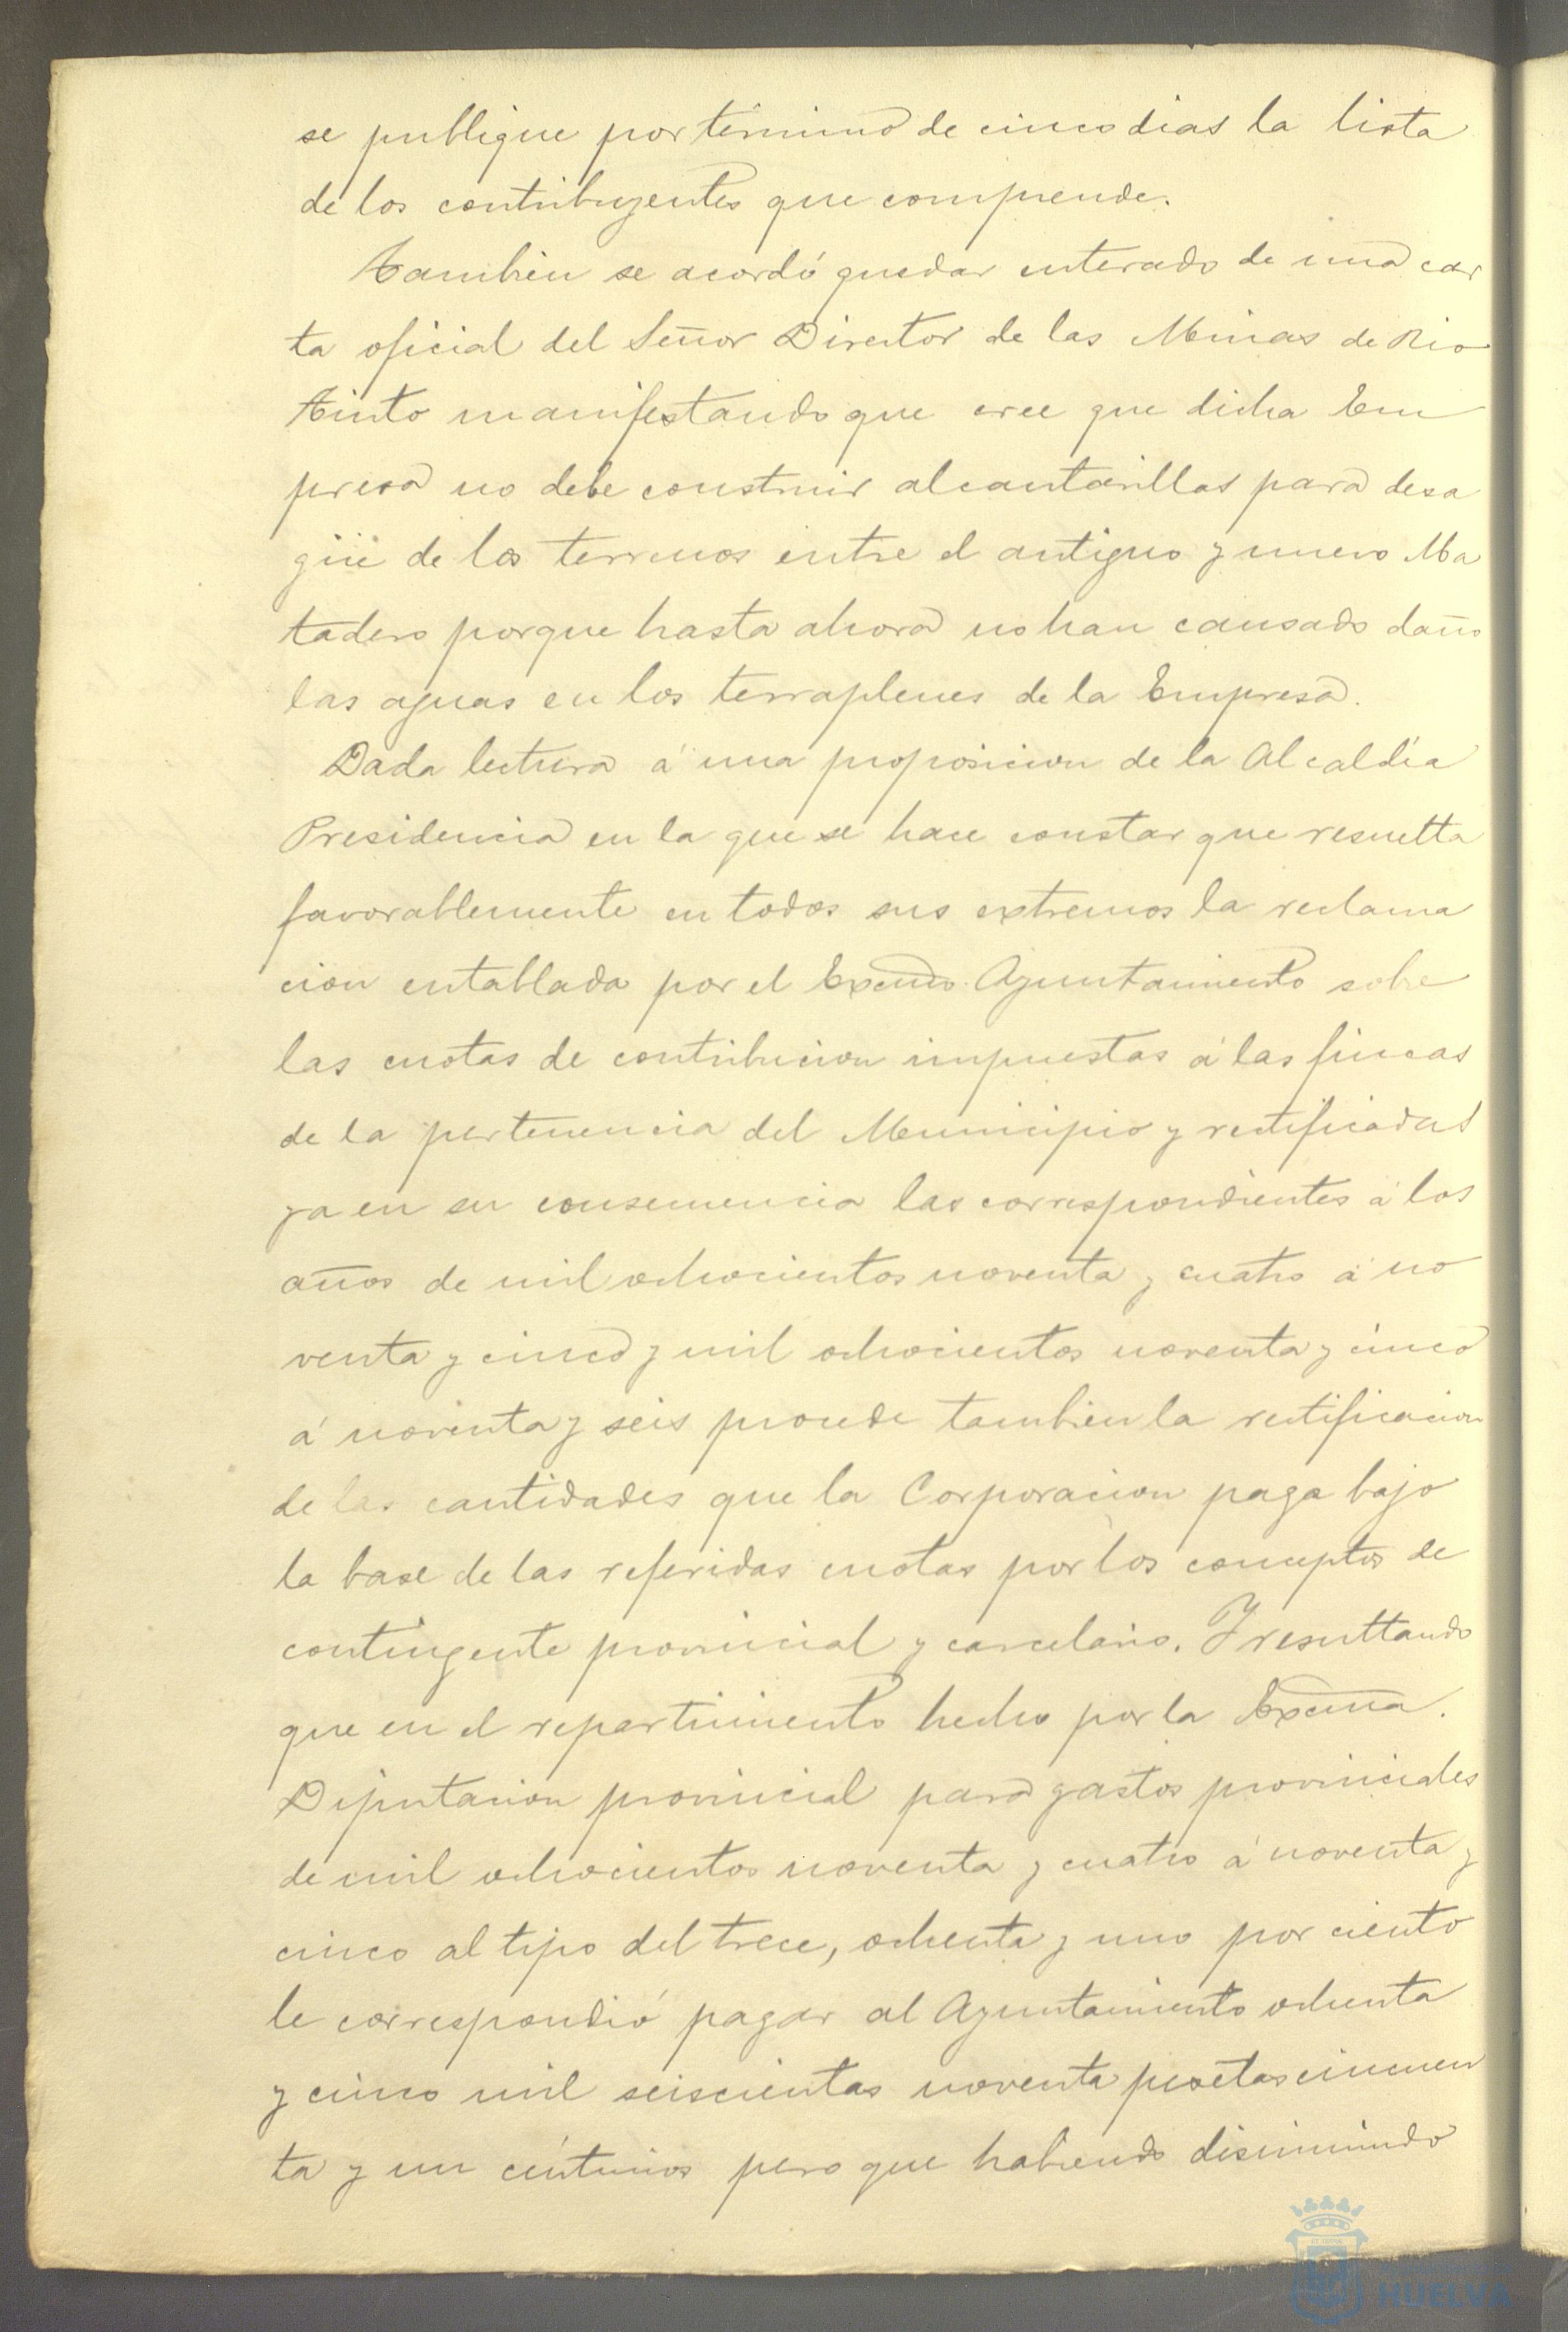 se publique por término de cinco dias la lista
de los contribuyentes que comprende.
Tambien se acordó quedar enterado de una car
ta oficial del Señor Director de las Minas de Rio
Tinto manifestando que cree que dicha Em
presa no debe construir alcantarillas para desa
güe de los terrenos entre el antiguo y nuevo Ma
tadero porque hasta ahora no han causado daño
las aguas en los terraplenes de la Empresa.
Dada lectura á una proposicion de la Alcaldía
Presidencia en la que se hace constar que resuelta
favorablemente en todos sus extremos la reclama
cion entablada por el Excmo. Ayuntamiento sobre
las cuotas de contribucion impuestas á las fincas
de la pertenencia del Municipio y rectificadas
ya en su consecuencia las correspondientes á los
años de mil ochocientos noventa y cuatro á no
venta y cinco y mil ochocientos noventa y cinco
á noventa y seis procede tambien la rectificacion
de las cantidades que la Corporacion paga bajo
la base de las referidas cuotas por los conceptos de
contingente provincial y carcelario. Y resultando
que en el repartimiento hecho por la Excma.
Diputacion provincial para gastos provinciales
de mil ochocientos noventa y cuatro á noventa y
cinco al tipo del trece, ochenta y uno por ciento
le correspondió pagar al Ayuntamiento ochenta
y cinco mil seiscientas noventa pesetas cincuen
ta y un céntimos pero que habiendo disminuido
HUELVA